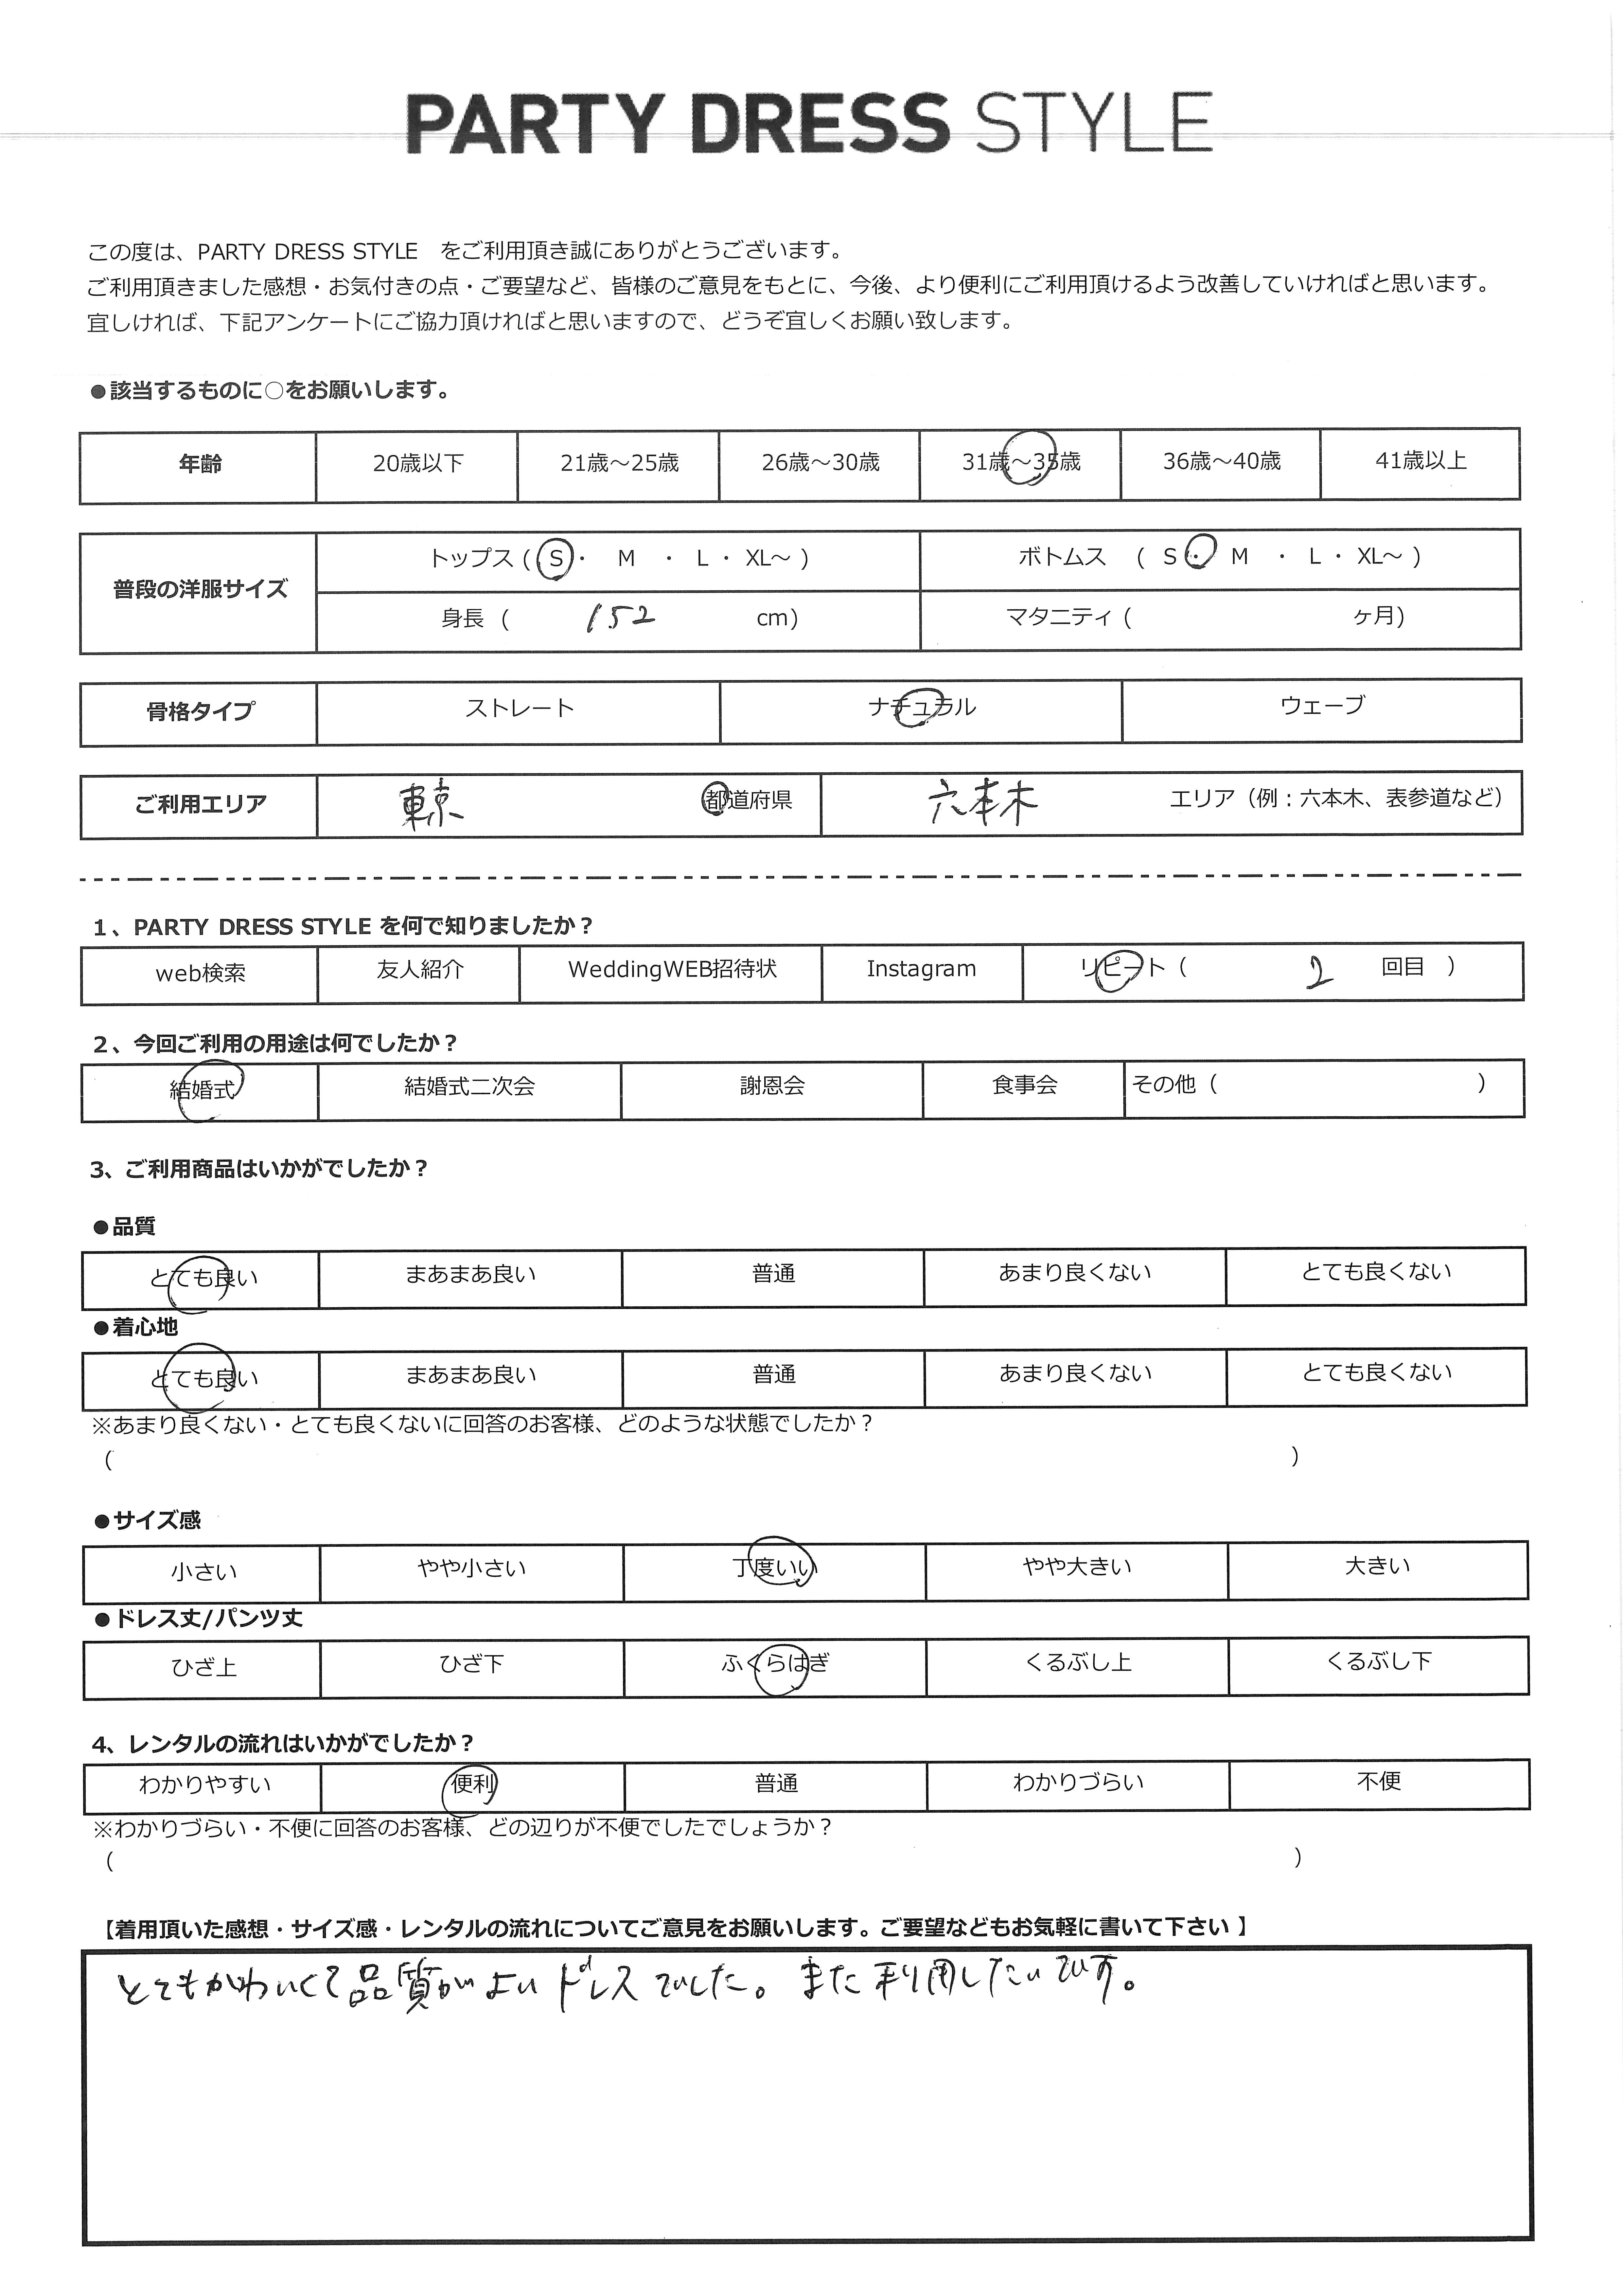 PARTY DRESS STYLE
この度は、PARTY DRESS STYLE　をご利用頂き誠にありがとうございます。
ご利用頂きました感想・お気付きの点・ご要望など、皆様のご意見をもとに、今後、より便利にご利用頂けるよう改善していければと思います。
宜しければ、下記アンケートにご協力頂ければと思いますので、どうぞ宜しくお願い致します。
●該当するものに○をお願いします。
年齢 20歳以下 21歳～25歳 26歳～30歳 31歳～35歳 36歳～40歳 41歳以上
普段の洋服サイズ トップス ( S ・ M ・ L ・ XL～ ) ボトムス ( S ・ M ・ L ・ XL～ )
身長 ( 152 cm) マタニティ ( ヶ月)
骨格タイプ ストレート ナチュラル ウェーブ
ご利用エリア 東京 都道府県 六本木 エリア（例：六本木、表参道など）
1、PARTY DRESS STYLE を何で知りましたか？
web検索 友人紹介 WeddingWEB招待状 Instagram リピート（ 2 回目 ）
2、今回ご利用の用途は何でしたか？
結婚式 結婚式二次会 謝恩会 食事会 その他（ ）
3、ご利用商品はいかがでしたか？
●品質
とても良い まあまあ良い 普通 あまり良くない とても良くない
●着心地
とても良い まあまあ良い 普通 あまり良くない とても良くない
※あまり良くない・とても良くないに回答のお客様、どのような状態でしたか？
（ ）
●サイズ感
小さい やや小さい 丁度いい やや大きい 大きい
●ドレス丈/パンツ丈
ひざ上 ひざ下 ふくらはぎ くるぶし上 くるぶし下
4、レンタルの流れはいかがでしたか？
わかりやすい 便利 普通 わかりづらい 不便
※わかりづらい・不便に回答のお客様、どの辺りが不便でしたでしょうか？
（ ）
【着用頂いた感想・サイズ感・レンタルの流れについてご意見をお願いします。ご要望などもお気軽に書いて下さい 】
とてもかわいくて品質がよいドレスでした。また利用したいです。